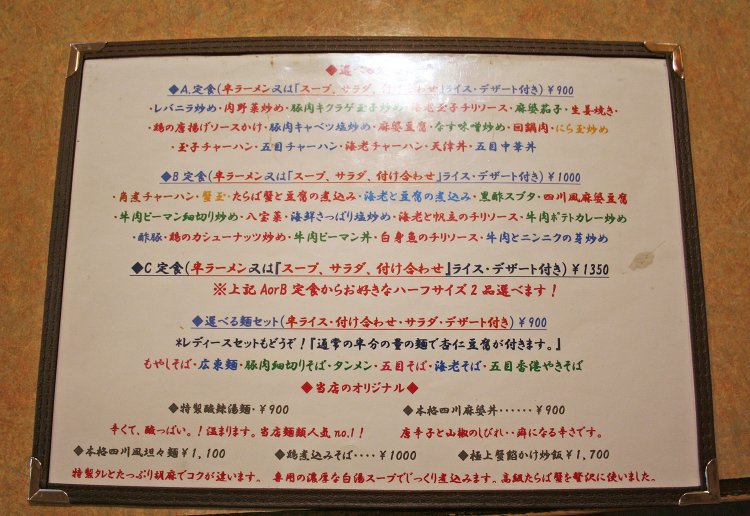 ◆選べる
◆A.定食(半ラーメン又は『スープ、サラダ、付け合わせ』ライス・デザート付き)¥900
・レバニラ炒め・肉野菜炒め・豚肉キクラゲ玉子炒め・海老玉子チリソース・麻婆茄子・生姜焼き・
・鶏の唐揚げソースかけ・豚肉キャベツ塩炒め・麻婆豆腐・なす味噌炒め・回鍋肉・にら玉炒め
・玉子チャーハン・五目チャーハン・海老チャーハン・天津丼・五目中華丼
◆B定食(半ラーメン又は『スープ、サラダ、付け合わせ』ライス・デザート付き)¥1000
・角煮チャーハン・蟹玉・たらば蟹と豆腐の煮込み・海老と豆腐の煮込み・黒酢スブタ・四川風麻婆豆腐
・牛肉ピーマン細切り炒め・八宝菜・海鮮さっぱり塩炒め・海老と帆立のチリソース・牛肉ポテトカレー炒め
・酢豚・鶏のカシューナッツ炒め・牛肉ピーマン丼・白身魚のチリソース・牛肉とニンニクの芽炒め
◆C定食(半ラーメン又は『スープ、サラダ、付け合わせ』ライス・デザート付き)¥1350
※上記AorB定食からお好きなハーフサイズ2品選べます！
◆選べる麺セット(半ライス・付け合わせ・サラダ・デザート付き)¥900
*レディースセットもどうぞ！『通常の半分の量の麺で杏仁豆腐が付きます。』
もやしそば・広東麺・豚肉細切りそば・タンメン・五目そば・海老そば・五目香港やきそば
◆当店のオリジナル◆
◆特製酸辣湯麺・¥900 ◆本格四川麻婆丼‥‥‥¥900
辛くて、酸っぱい。！温まります。当店麺類人気no.1！ 唐辛子と山椒のしびれ‥癖になる辛さです。
◆本格四川風坦々麺¥1,100 ◆鶏煮込みそば‥‥¥1000 ◆極上蟹餡かけ炒飯¥1,700
特製タレとたっぷり胡麻でコクが違います。 専用の濃厚な白湯スープでじっくり煮込みます。高級たらば蟹を贅沢に使いました。